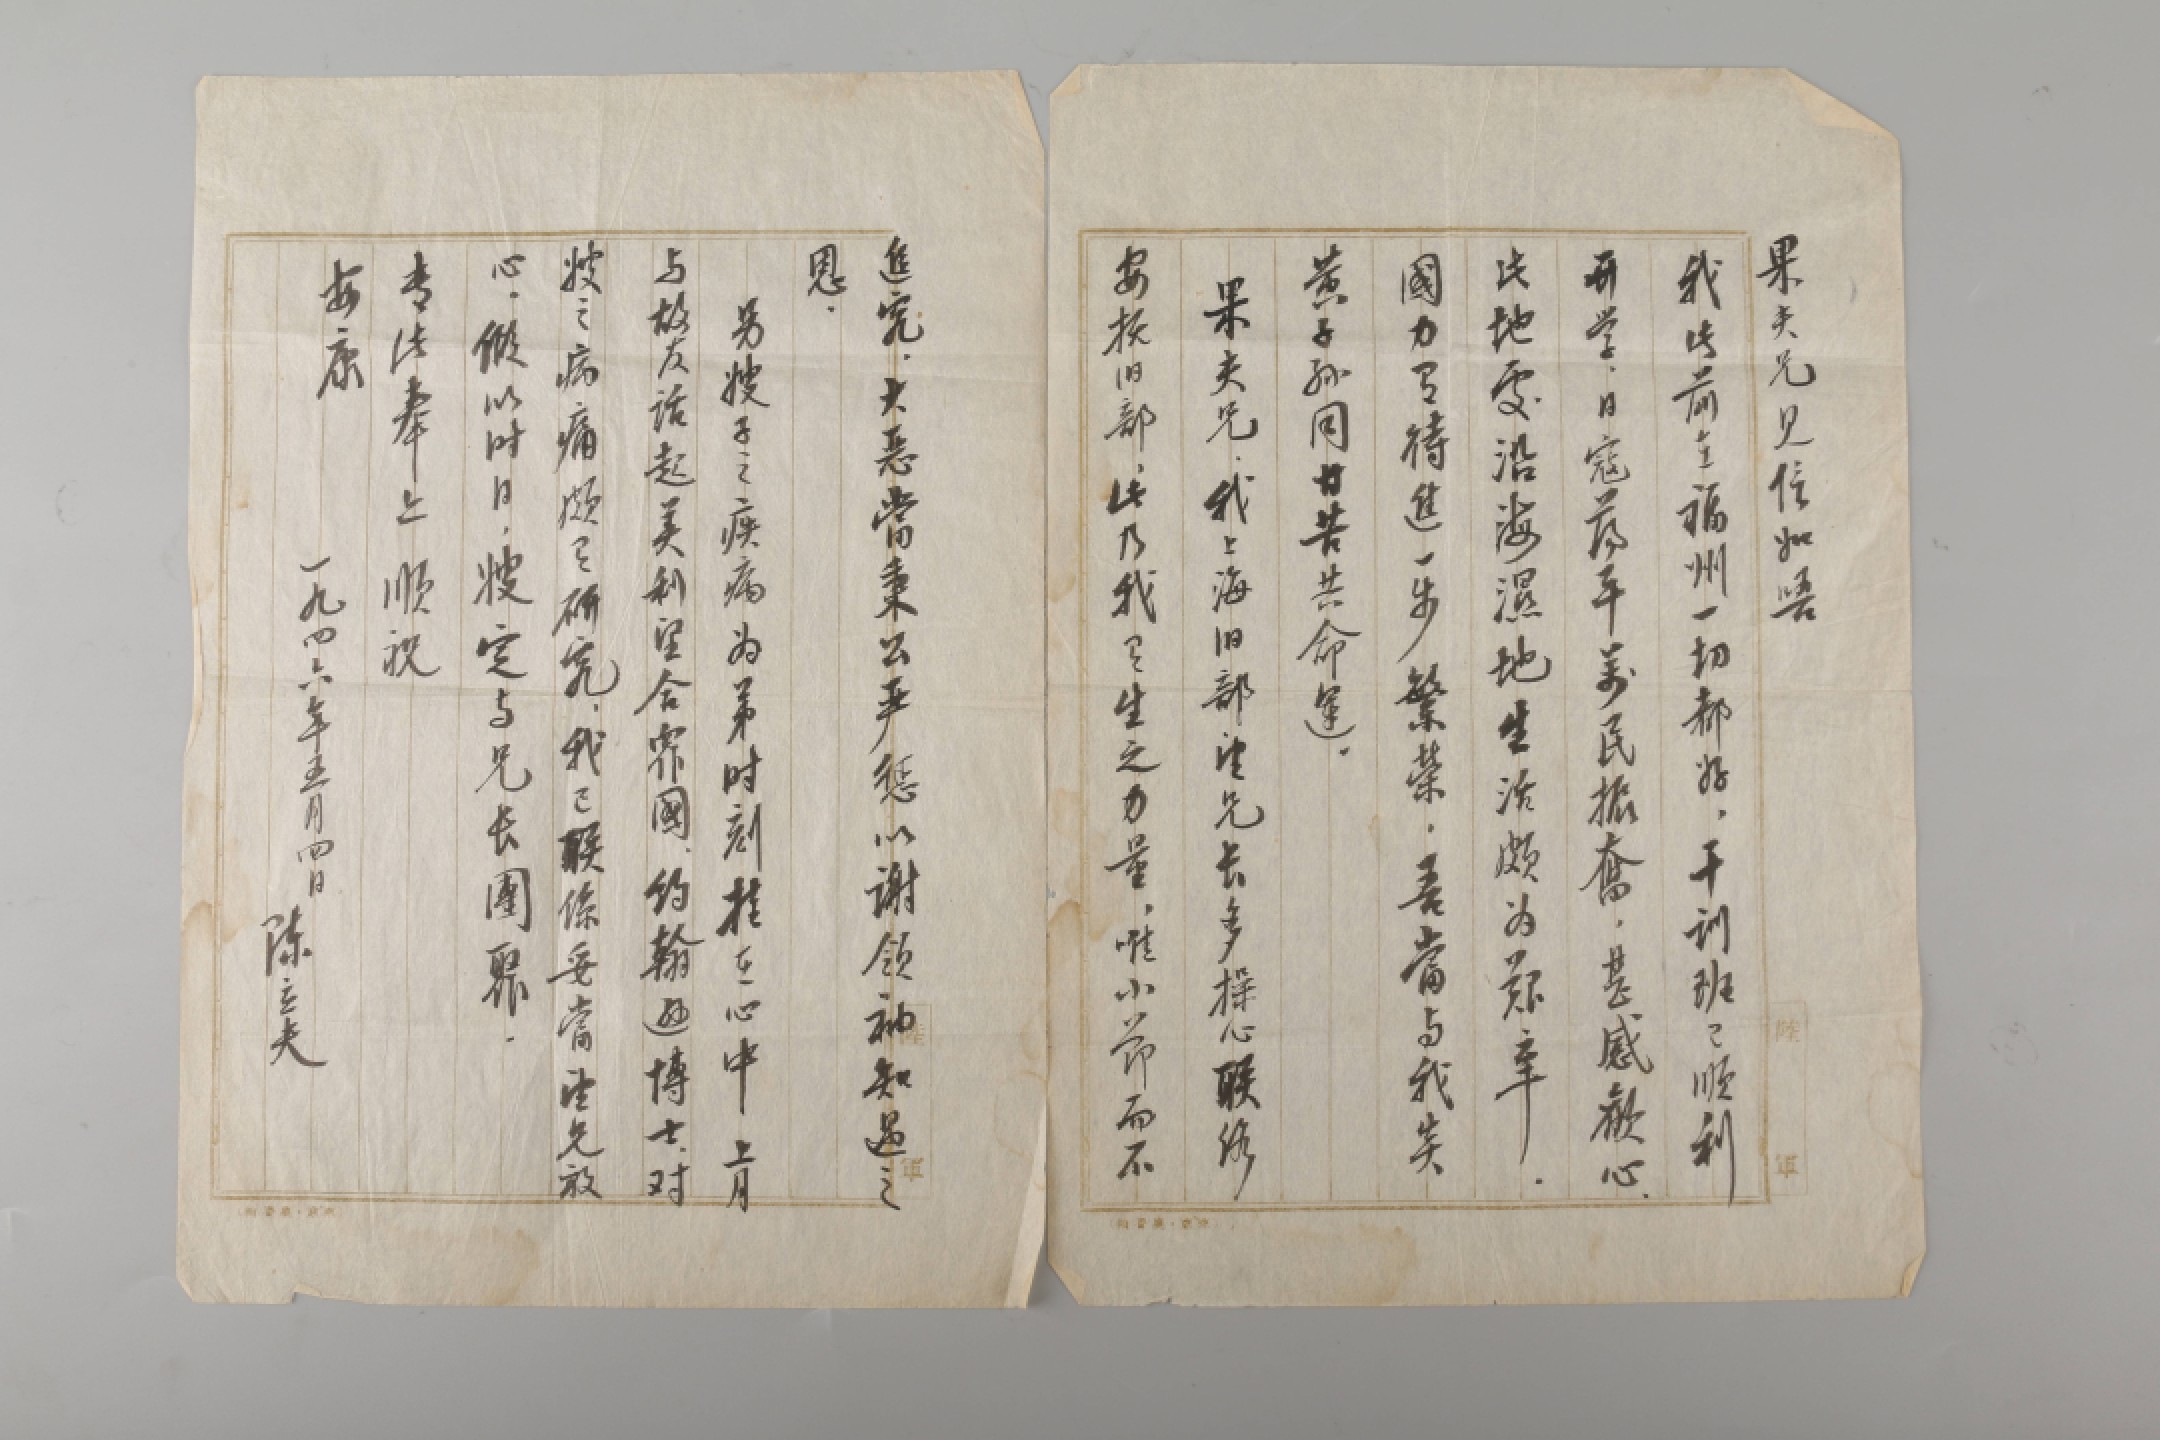 果夫兄见信如晤
我此前在福州一切都好，干训班已顺利
开学，日寇荡平萬民振奮，甚感歡心，
此地處沿海濕地生活頗为艱辛．
國力有待進一步繁榮，吾當与我炎
黄子孙同甘苦共命運．
果夫兄，我上海旧部望兄长多操心联络
安抚旧部，此乃我已生之力量，唯小節而不
進究，大惡當秉公严惩以谢領袖知遇之
恩．
另嫂子之疾病为弟时刻挂在心中 上月
与故友话起美利坚合众國，约翰遜博士，对
嫂之病痛頗有研究，我已联係妥當望兄放
心，假以时日，嫂定与兄长團聚．
专此奉上 順祝
安康
一九四六年五月四日
陈立夫
陸
軍
陸
軍